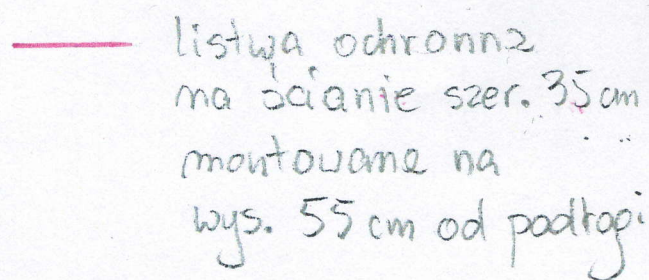 listwa ochronna
na ścianie szer. 35 cm
montowane na
wys. 55 cm od podłogi